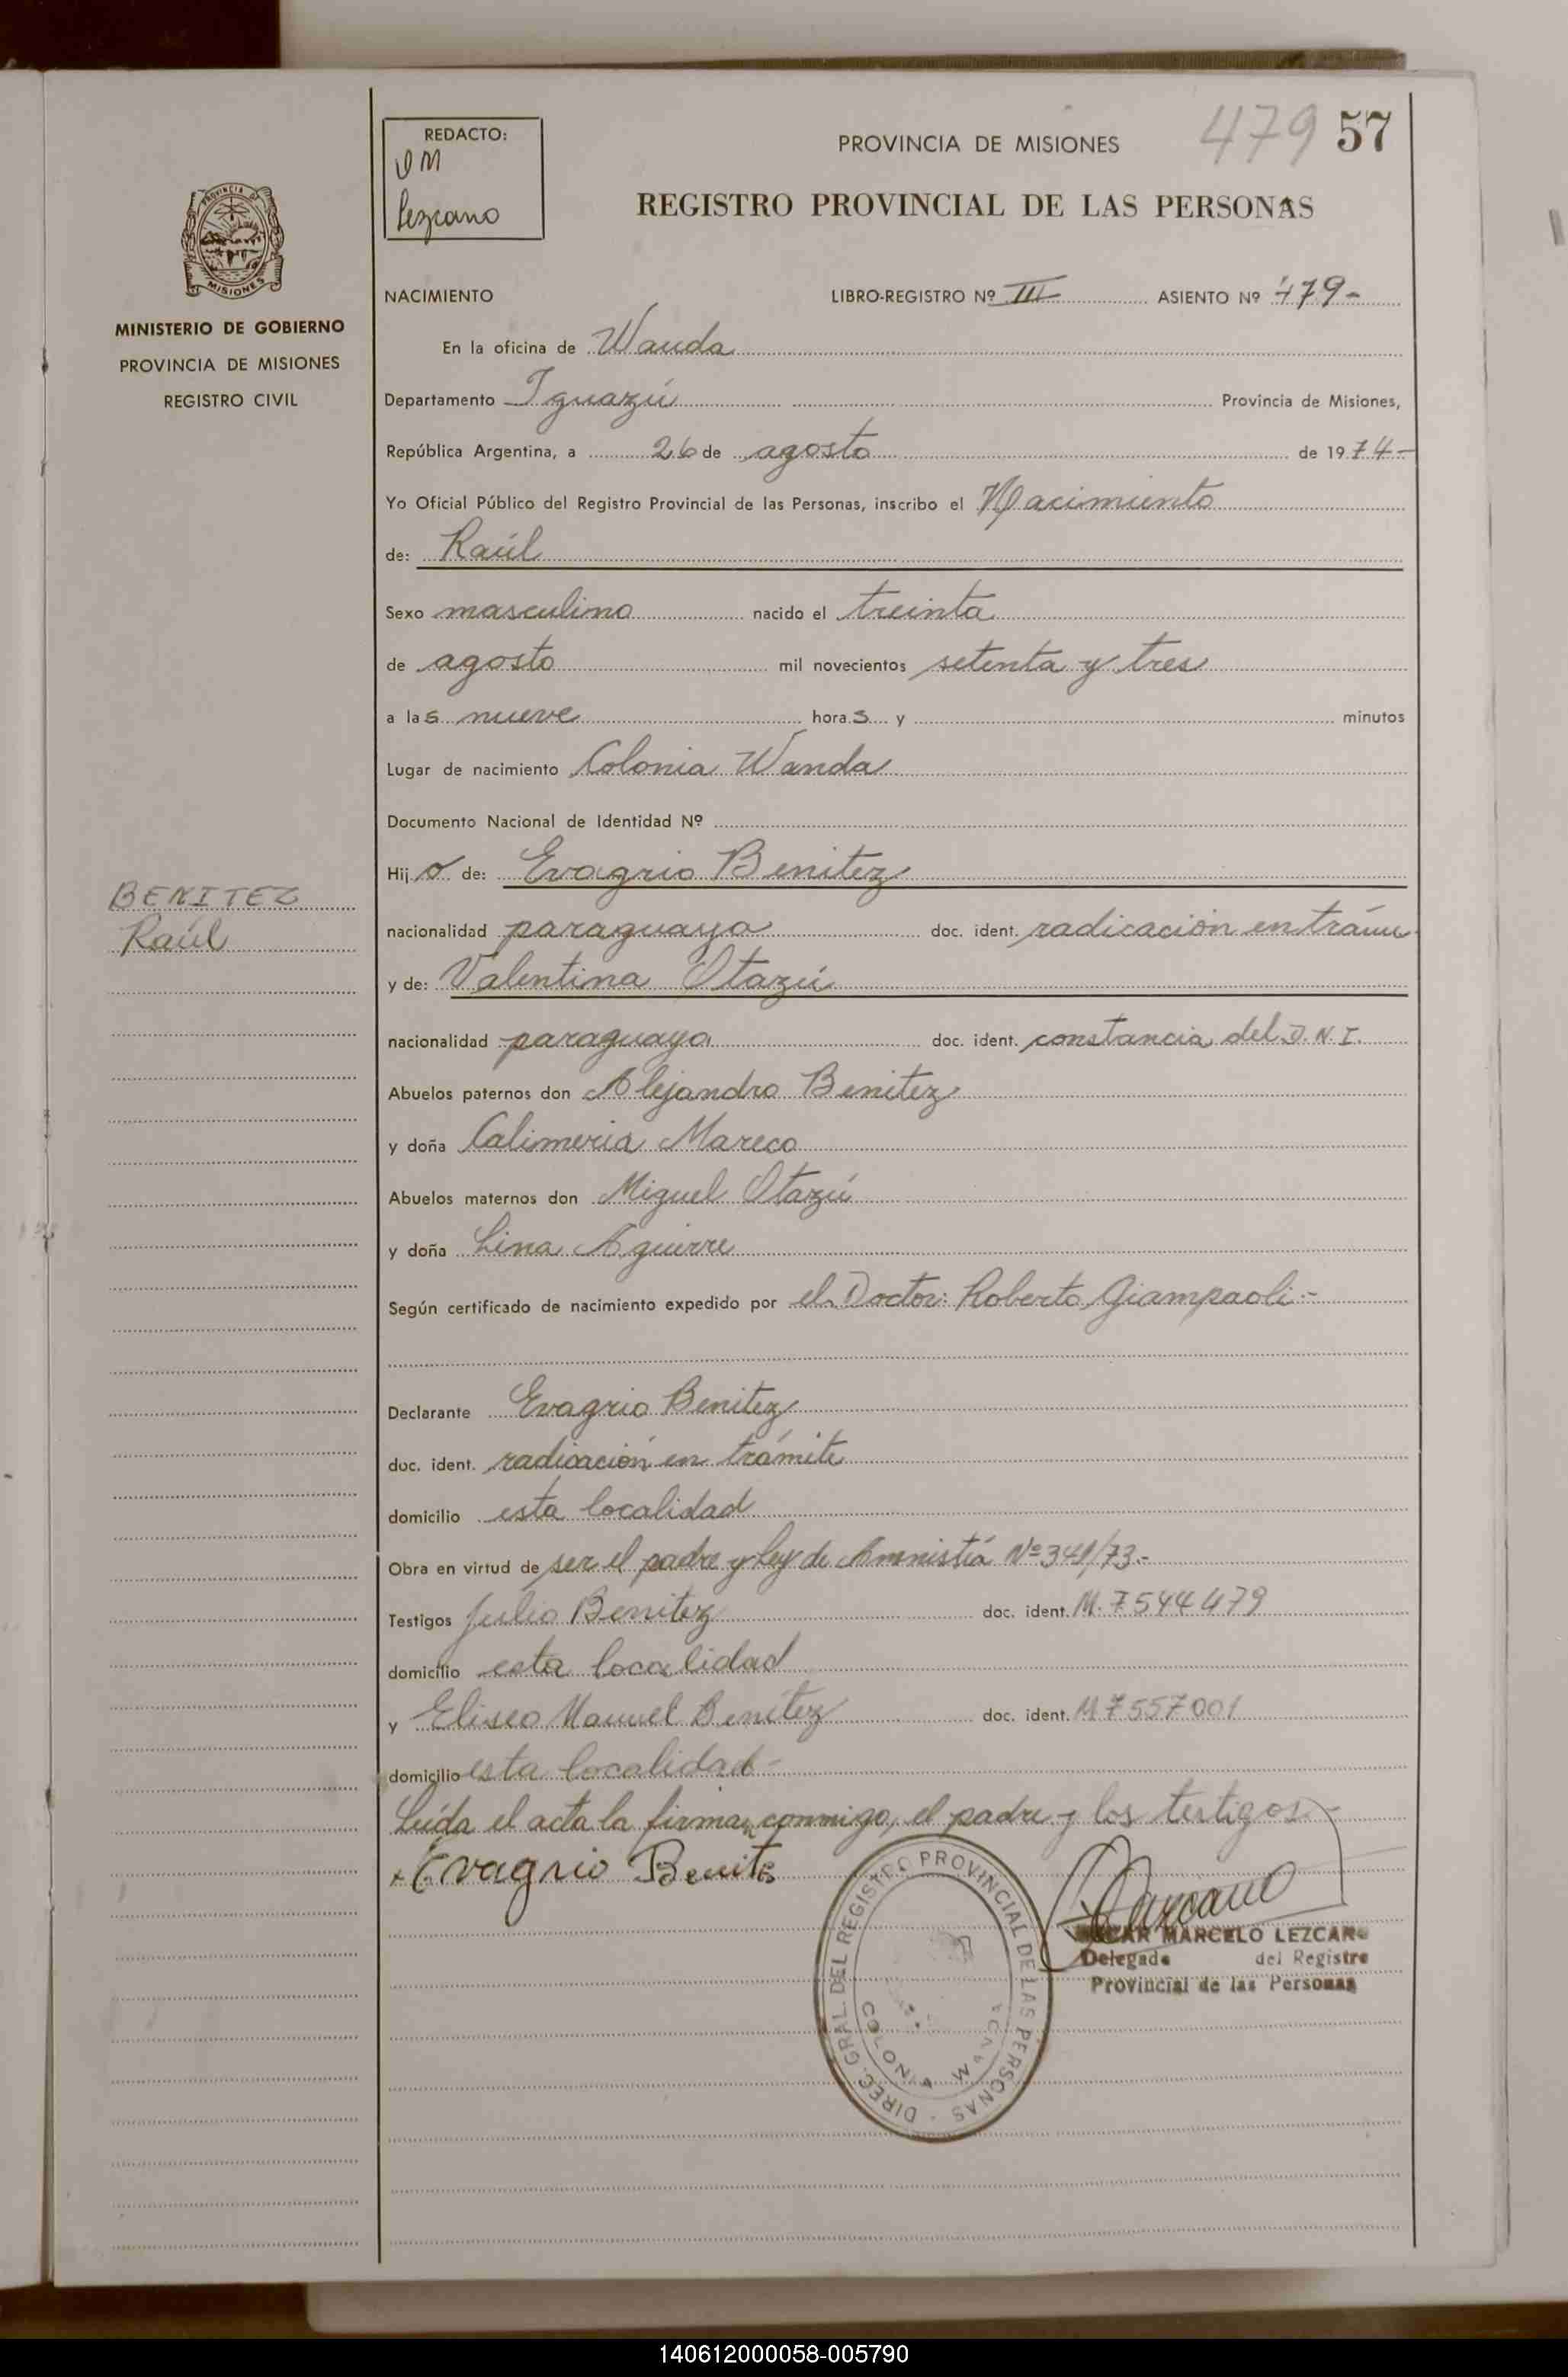 479 57
REDACTO:
Lezcano
PROVINCIA DE MISIONES
REGISTRO PROVINCIAL DE LAS PERSONAS
PROVINCIA DE
MISIONES
MINISTERIO DE GOBIERNO
PROVINCIA DE MISIONES
REGISTRO CIVIL
NACIMIENTO LIBRO-REGISTRO Nº III ASIENTO Nº 479-
En la oficina de Wanda
Departamento Iguazú Provincia de Misiones,
República Argentina, a 26 de agosto de 1974-
Yo Oficial Público del Registro Provincial de las Personas, inscribo el Nacimiento
de: Raúl
Sexo masculino nacido el treinta
de agosto mil novecientos setenta y tres
a las nueve horas y minutos
Lugar de nacimiento Colonia Wanda
Documento Nacional de Identidad Nº
Hijo de: Evagrio Benitez
BENITEZ
Raúl
nacionalidad paraguaya doc. ident. radicación en trámi
y de: Valentina Otazú
nacionalidad paraguaya doc. ident. constancia del D.N.I.
Abuelos paternos don Alejandro Benitez
y doña Calimeria Mareco
Abuelos maternos don Miguel Otazú
y doña Lina Aguirre
Según certificado de nacimiento expedido por el Doctor: Roberto Giampaoli.-
Declarante Evagrio Benitez
doc. ident. radicación en trámite
domicilio esta localidad
Obra en virtud de ser el padre y Ley de Amnistía Nº 341/73.-
Testigos Julio Benitez doc. ident. M. 7544479
domicilio esta localidad
y Eliseo Manuel Benítez doc. ident. M 7557001
domicilio esta localidad-
Leída el acta la firman conmigo, el padre y los testigos.-
Evagrio Benite
DIREC. GRAL. DEL REGISTRO PROVINCIAL DE LAS PERSONAS
COLONIA WANDA
Lezcano
MARCELO LEZCANO
Delegado del Registro
Provincial de las Personas
140612000058-005790